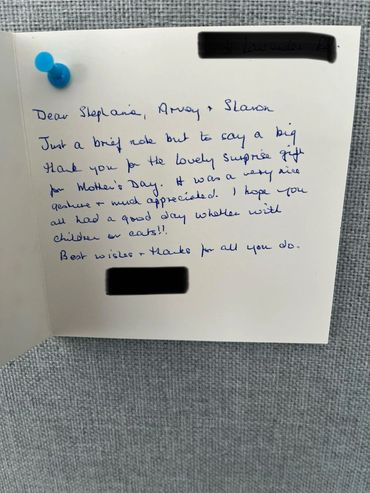 Dear Stephanie, Arvoy + Sharon
Just a brief note but to say a big
thank you for the lovely surprise gift
for Mother's Day. It was a very nice
gesture + much appreciated. I hope you
all had a good day whether with
children or cats!!.
Best wishes + thanks for all you do.